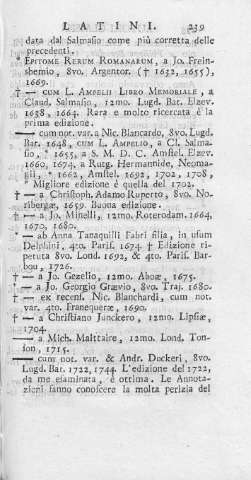 LATINI. 239
data dal Salmasio come più corretta delle
precedenti.
* EPITOME RERUM ROMANARUM, a Jo. Frein-
shemio, 8vo. Argentor. († 1632, 1655),
1669.
† — CUM L. AMPELII LIBRO MEMORIALE, a
Claud. Salmasio, 12mo. Lugd. Bat. Elzev.
1638, 1664. Rara e molto ricercata è la
prima edizione.
— cum not. var. a Nic. Blancardo, 8vo. Lugd.
Bat. 1648, CUM L. AMPELIO, a Cl. Salma-
sio, * 1655, a S. M. D. C. Amstel. Elzev.
1660, 1674, a Rutg. Hermannide, Neoma-
gii, * 1662, Amstel. 1692, 1702, 1708,
* Migliore edizione è quella del 1702.
† — a Christoph. Adamo Ruperto, 8vo. No-
ribergæ, 1659. Buona edizione.
† — a Jo. Minelli, 12mo. Roterodam. 1664,
1670, 1680.
† — ab Anna Tanaquilli Fabri filia, in usum
Delphini, 4to. Paris. 1674. † Edizione ri-
petuta 8vo. Lond. 1692, & 4to. Paris. Bar-
bou, 1726.
— a Jo. Gezelio, 12mo. Aboæ, 1675.
* — a Jo. Georgio Grævio, 8vo. Traj. 1680.
† — ex recens. Nic. Blanchardi, cum not.
var. 4to. Franequeræ, 1690.
— a Christiano Junckero, 12mo. Lipsiæ,
1704.
— a Mich. Maittaire, 12mo. Lond. Ton-
son, 1715.
— cum not. var. & Andr. Duckeri, 8vo.
Lugd. Bat. 1722, 1744. L'edizione del 1722,
da me esaminata, è ottima. Le Annota-
zioni fanno conoscere la molta perizia del